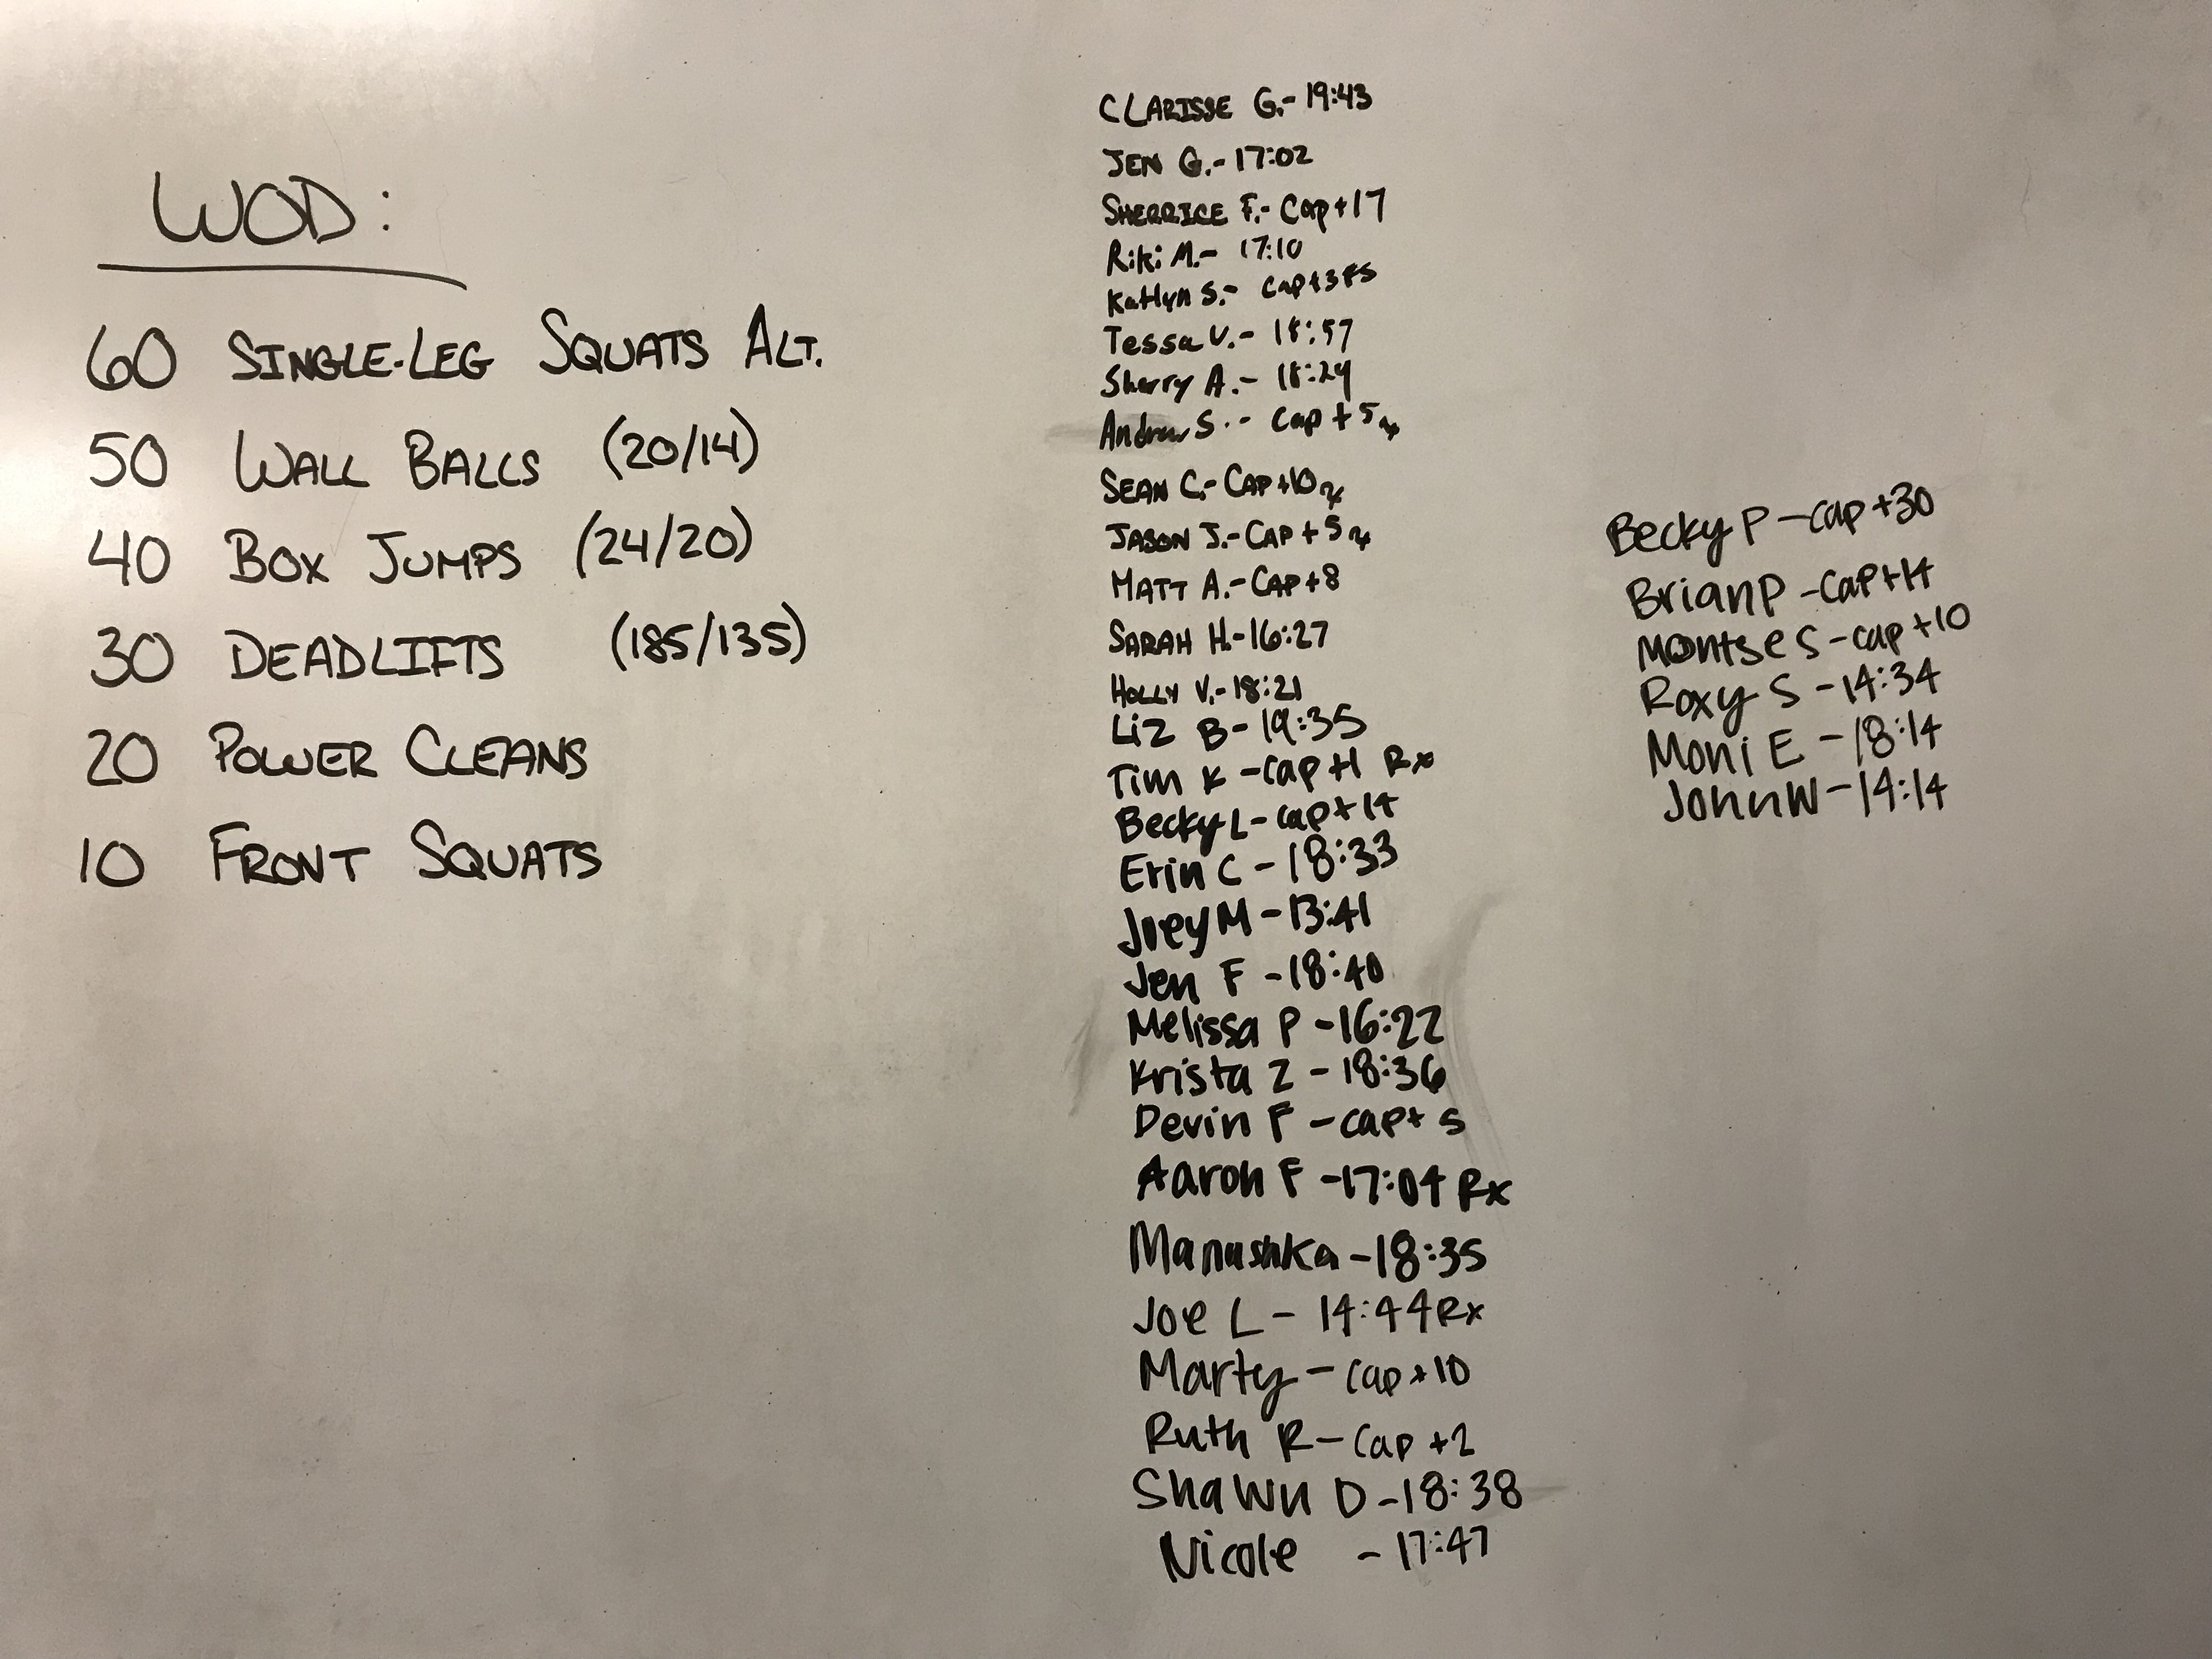 WOD:
60 SINGLE-LEG SQUATS ALT.
50 WALL BALLS (20/14)
40 BOX JUMPS (24/20)
30 DEADLIFTS (185/135)
20 POWER CLEANS
10 FRONT SQUATS
CLARISSE G.- 19:43
JEN G.- 17:02
SHERRICE F.- Cap+17
Riki M.- 17:10
Katlyn S.- Cap+3FS
Tessa V.- 18:57
Sherry A.- 18:24
Andrew S.- Cap + 5 rx
SEAN C.- CAP+10 rx
JASON J.- CAP + 5 rx
MATT A.- CAP+8
SARAH H.- 16:27
HOLLY V.- 18:21
Liz B- 19:35
Tim K -cap +1 Rx
Becky L- cap+14
Erin C - 18:33
Joey M - 13:41
Jen F - 18:40
Melissa P - 16:22
Krista Z - 18:36
Devin F - cap+ 5
Aaron F - 17:04 Rx
Manushka - 18:35
Joe L - 14:44 Rx
Marty - cap+10
Ruth R - cap +2
Shawn D - 18:38
Nicole - 17:47
Becky P - cap +30
Brian P - cap+14
Montse S - cap +10
Roxy S - 14:34
Moni E - 18:14
John W - 14:14